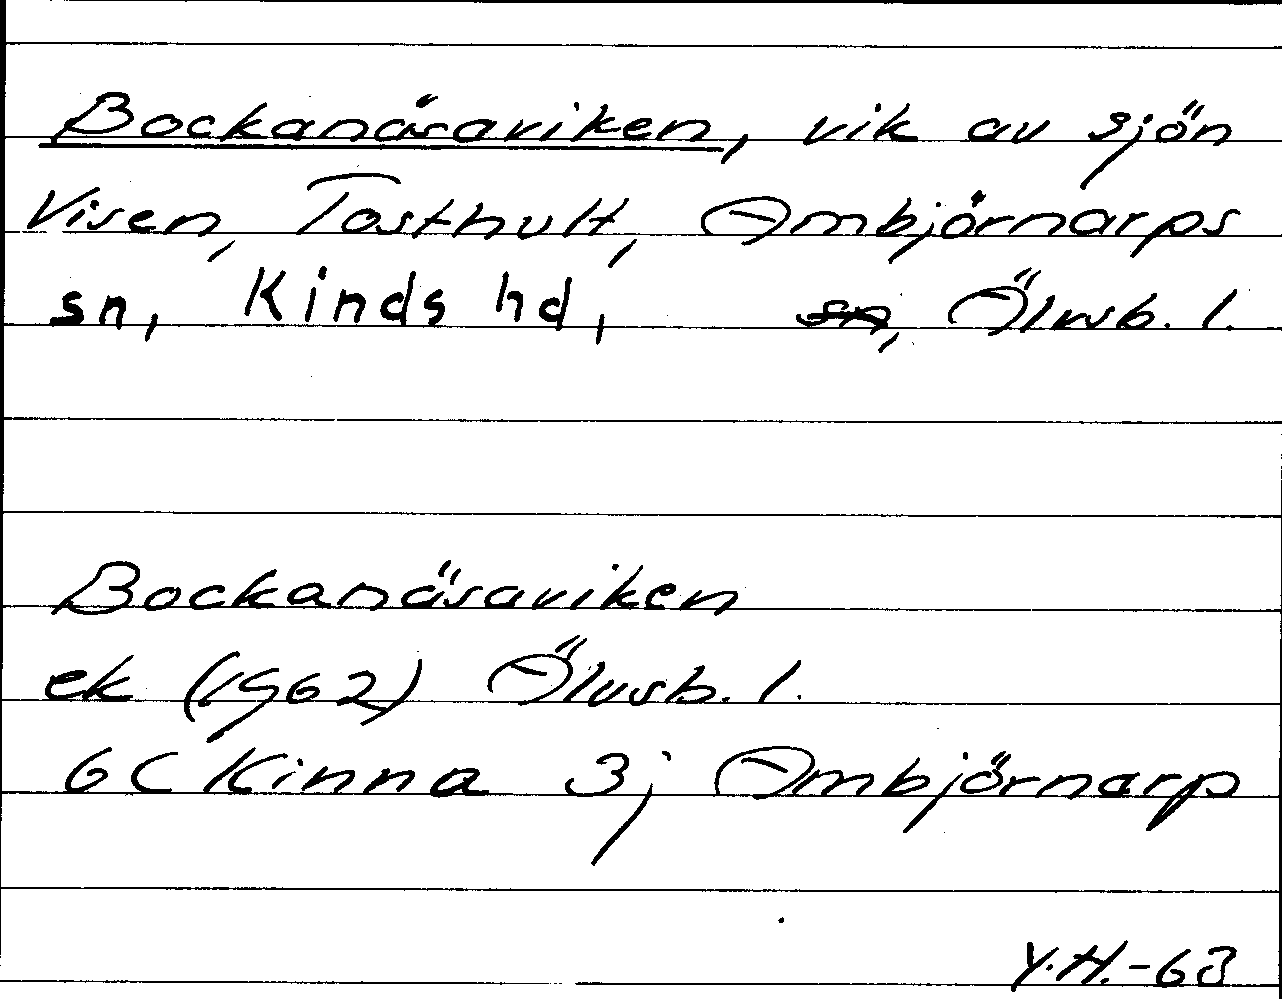 Bockanäsaviken, vik av sjön
Visen, Tosthult, Ambjörnarps
sn, Kinds hd, sn, Älvsb. l.
Bockanäsaviken
ek (1962) Älvsb. l.
6C Kinna 3j Ambjörnarp
Y.H.-63